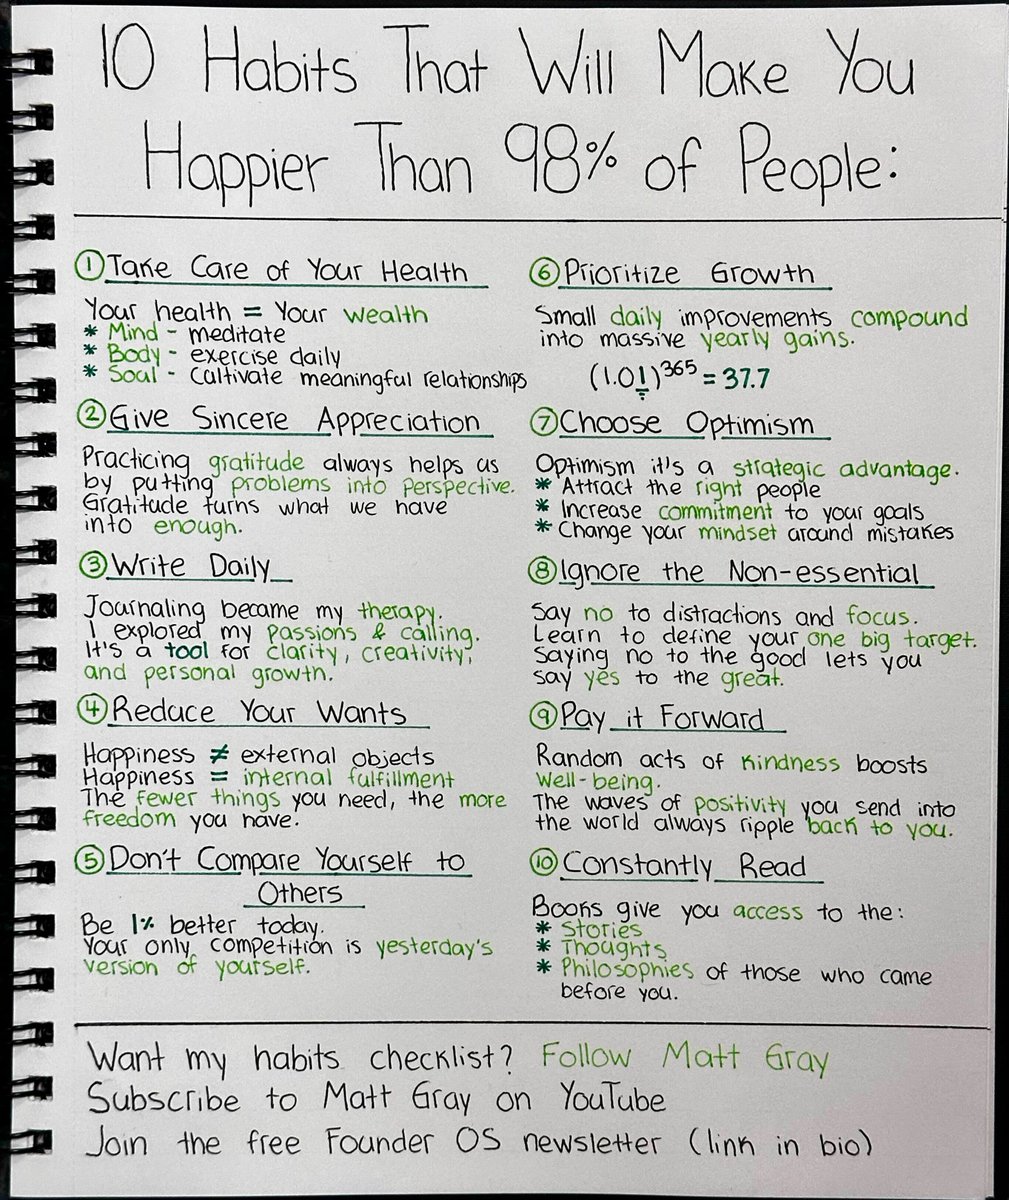 10 Habits That Will Make You
Happier Than 98% of People:
① Take Care of Your Health
Your health = Your wealth
* Mind - meditate
* Body - exercise daily
* Soul - Cultivate meaningful relationships
② Give Sincere Appreciation
Practicing gratitude always helps us
by putting problems into perspective.
Gratitude turns what we have
into enough.
③ Write Daily
Journaling became my therapy.
I explored my passions & calling.
It's a tool for clarity, creativity,
and personal growth.
④ Reduce Your Wants
Happiness ≠ external objects
Happiness = internal fulfillment
The fewer things you need, the more
freedom you have.
⑤ Don't Compare Yourself to
Others
Be 1% better today.
Your only competition is yesterday's
version of yourself.
⑥ Prioritize Growth
Small daily improvements compound
into massive yearly gains.
(1.01)³⁶⁵ = 37.7
⑦ Choose Optimism
Optimism it's a strategic advantage.
* Attract the right people
* Increase commitment to your goals
* Change your mindset around mistakes
⑧ Ignore the Non-essential
Say no to distractions and focus.
Learn to define your one big target.
Saying no to the good lets you
say yes to the great.
⑨ Pay it Forward
Random acts of kindness boosts
well-being.
The waves of positivity you send into
the world always ripple back to you.
⑩ Constantly Read
Books give you access to the:
* Stories
* Thoughts
* Philosophies of those who came
before you.
Want my habits checklist? Follow Matt Gray
Subscribe to Matt Gray on YouTube
Join the free Founder OS newsletter (link in bio)